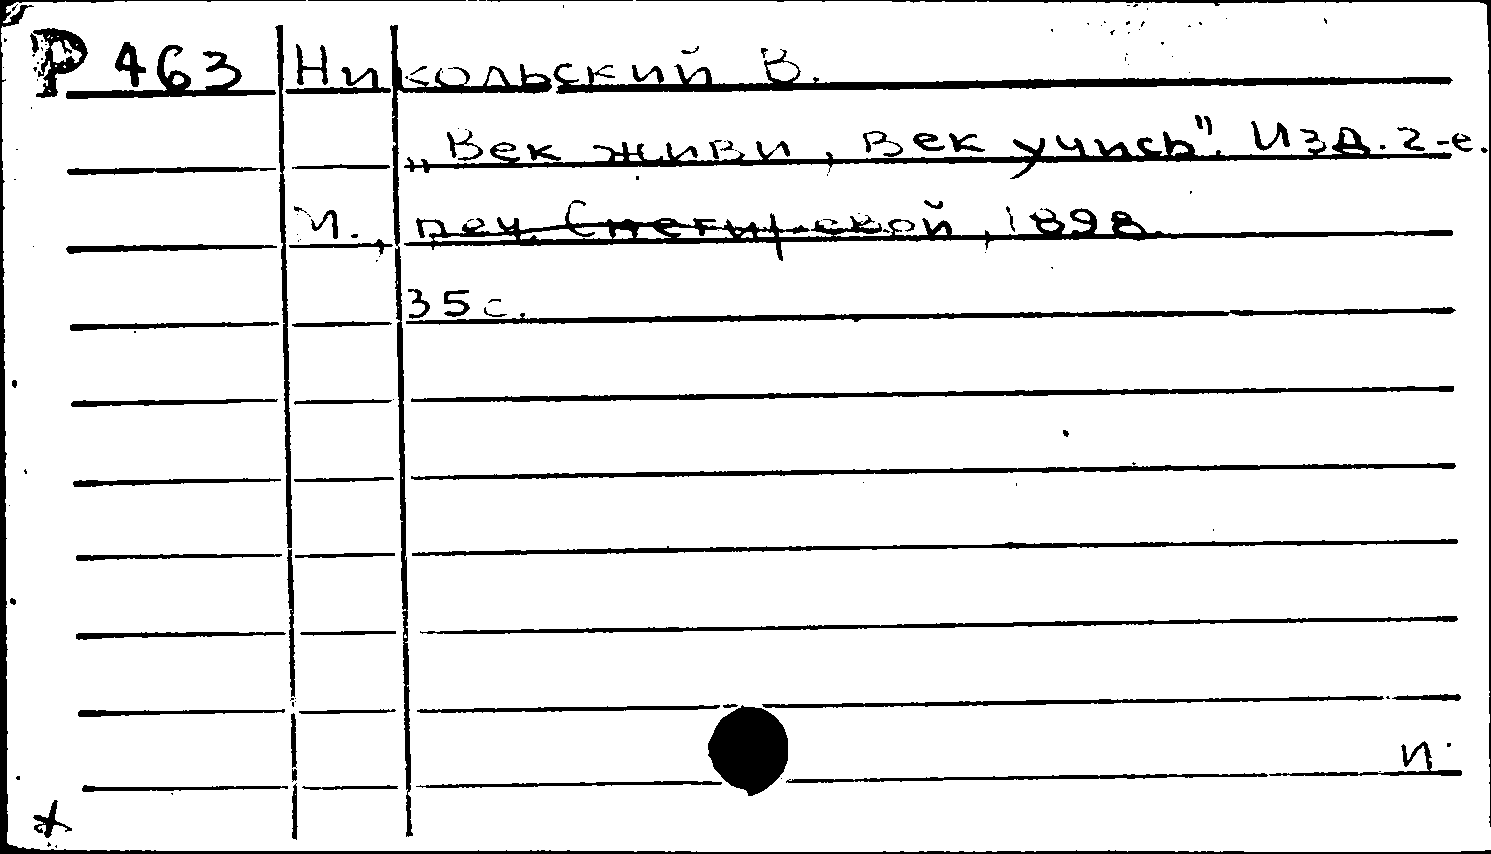 Р 463 Никольский В.
„Век живи, век учись". Изд. 2-е.
М., печ. Снегиревой, 1898.
35 с.
п.